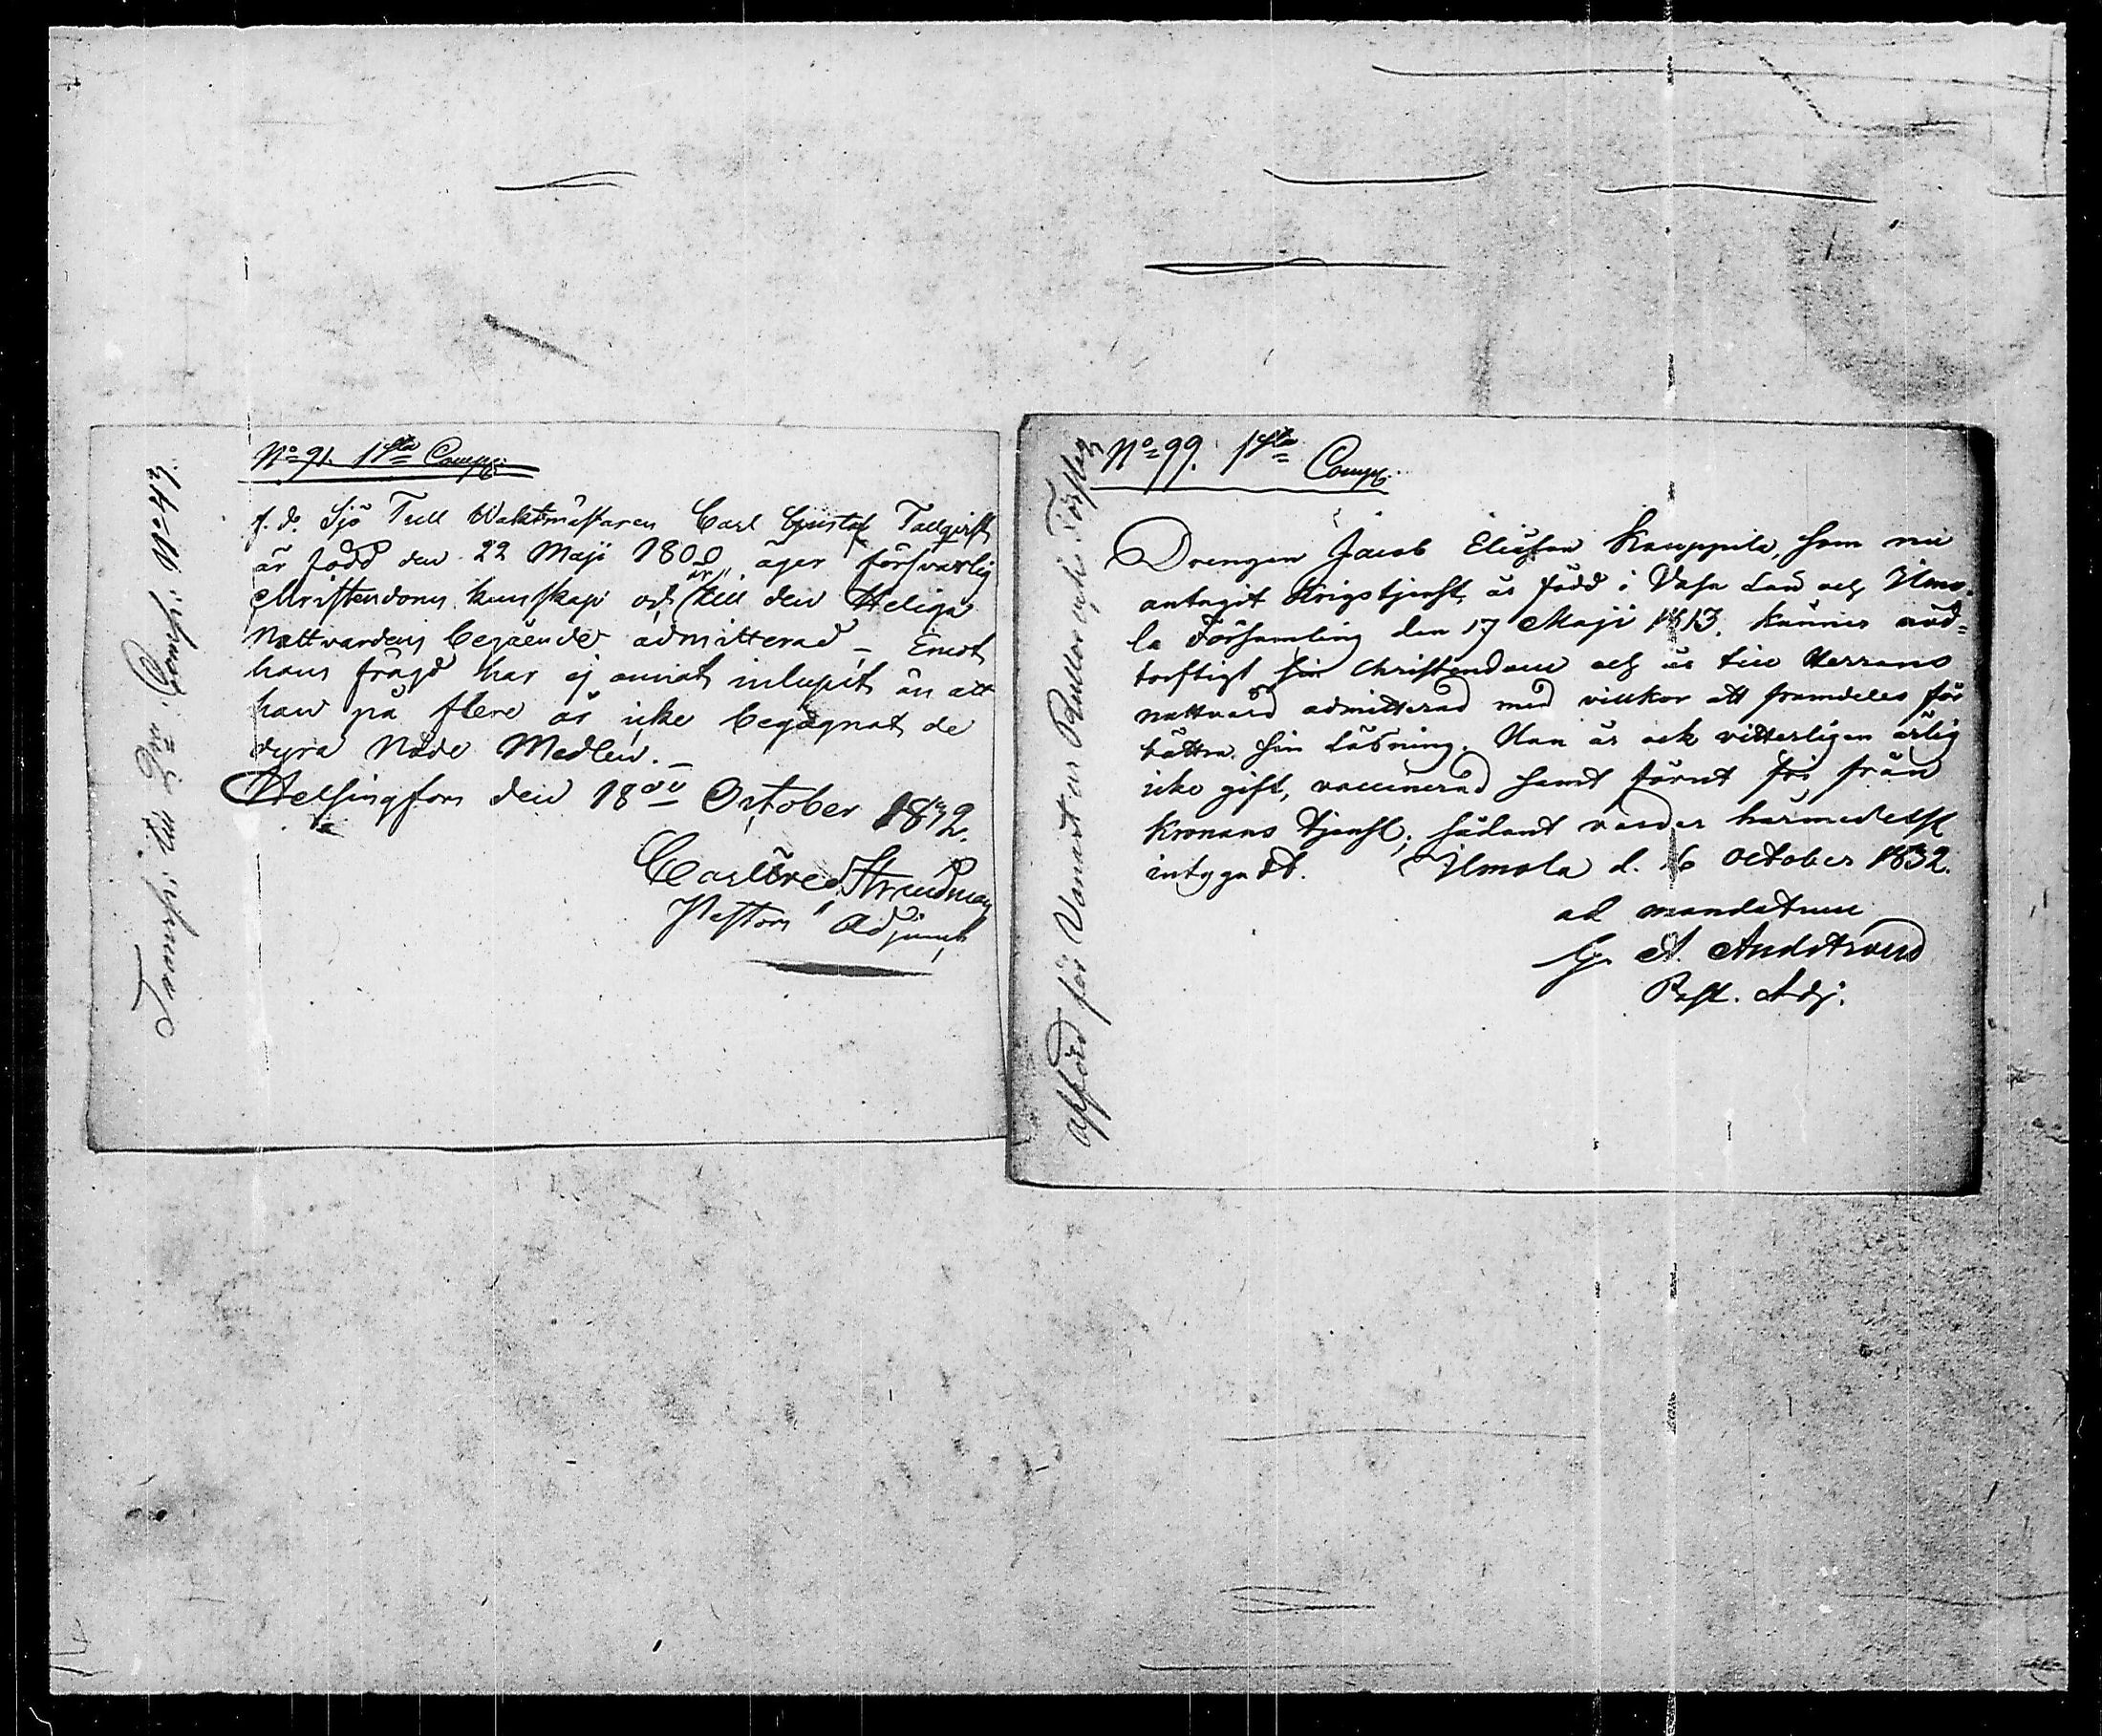 No 91. 1sta Comp:
f. d. Sjö Tull Waktmästaren Carl Gustaf Tallqvist
är född den 22 Maji 1800, äger försvarlig
Christendoms kunskap och är till den Heliga
Nattvardens begående admitterad – Emot
hans frägd har ej annat inlupit än att
han på flere år icke begagnat de
dyra Nåde Medlen. –
Helsingfors den 18de October 1832.
Carl Strandman
Pastors Adjunct
No 99. 1sta Comp:
Drengen Jacob Eliasson Kauppila, som nu
antagit Krigstjenst, är född i Vasa Län och Ilmo-
la Församling den 17 Maji 1813, känner nöd-
torftigt sin Christendom och är till Herrans
nattvard admitterad med villkor att framdeles för
bättra sin läsning. Han är ock vitterligen ärlig
icke gift, vaccinerad samt förut fri från
Kronans tjenst; sådant varder härmedelst
intygadt. Ilmola d. 16 October 1832.
ad mandatum
G. A.
Past. Adj.
afförd för Vanart ur Rullor